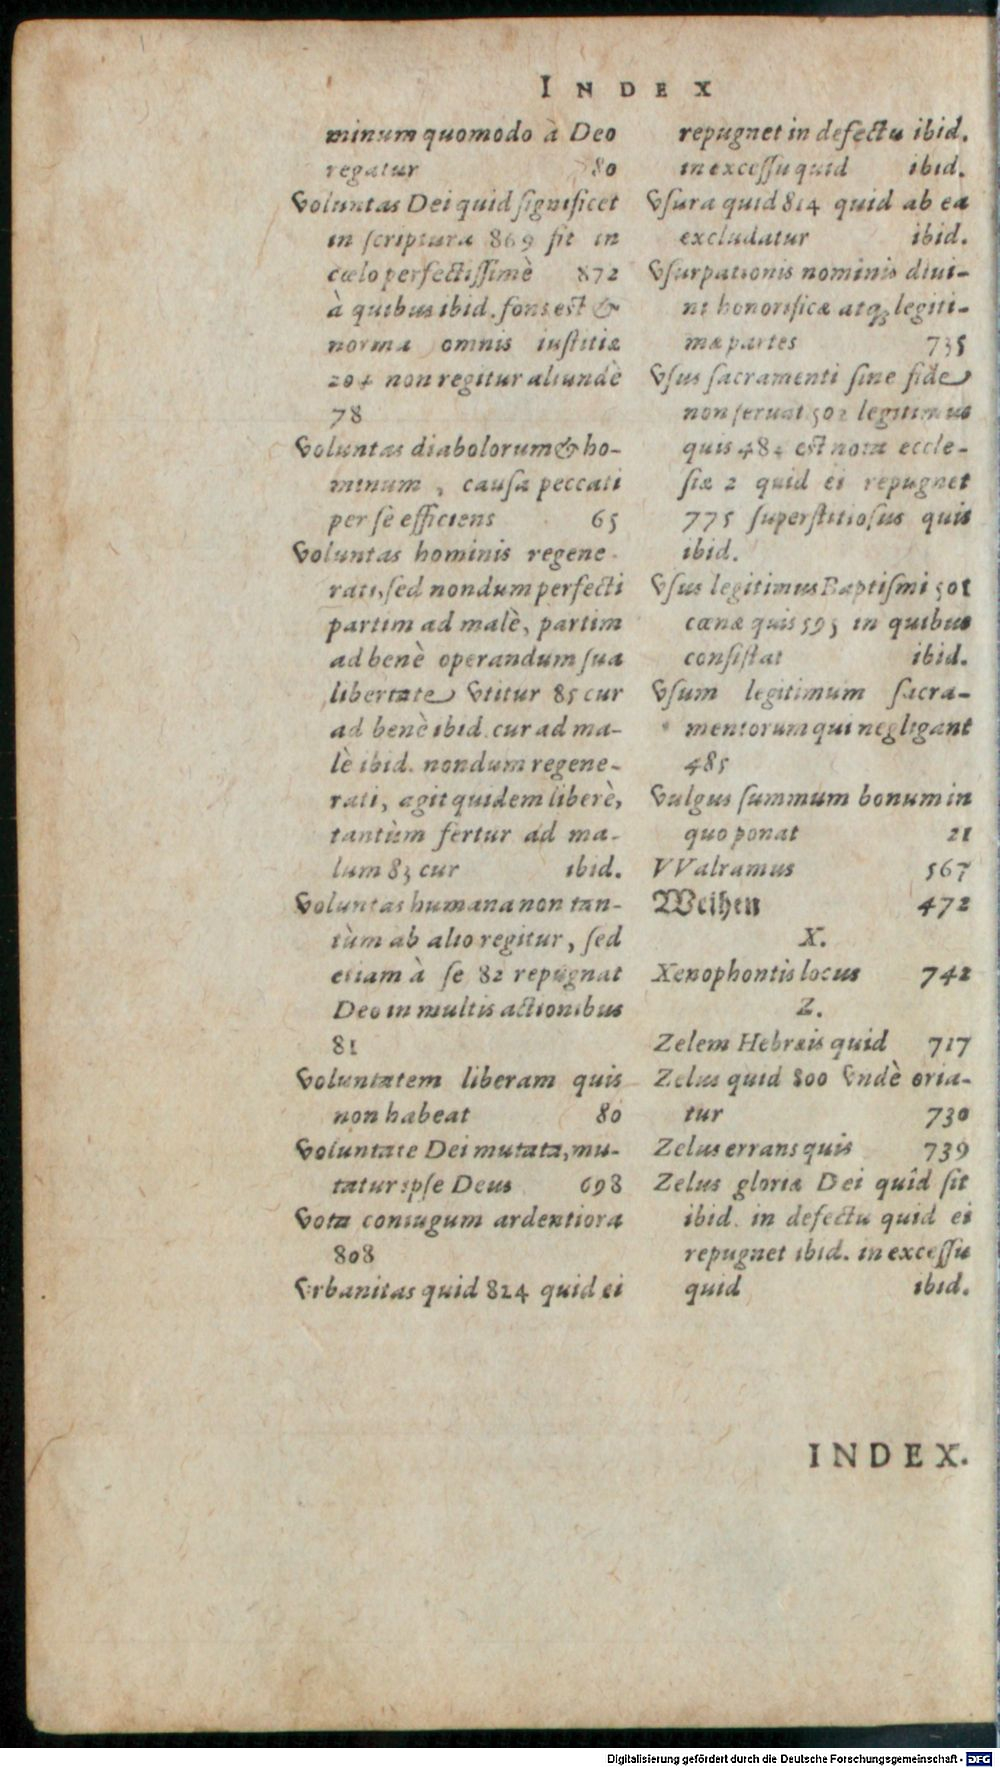 INDEX
minum quomodo à Deo
regatur 80
Voluntas Dei quid significet
in scriptura 869 sit in
cœlo perfectissimè 872
à quibus ibid. fons est &
norma omnis iustitiæ
204 non regitur aliundè
78
Voluntas diabolorum & ho-
minum, causa peccati
per sè efficiens 65
Voluntas hominis regene-
rati, sed nondum perfecti
partim ad malè, partim
ad benè operandum sua
libertate vtitur 85 cur
ad benè ibid. cur ad ma-
lè ibid. nondum regene-
rati, agit quidem liberè,
tantùm fertur ad ma-
lum 83 cur ibid.
Voluntas humana non tan-
tùm ab alio regitur, sed
etiam à se 82 repugnat
Deo in multis actionibus
81
Voluntatem liberam quis
non habeat 80
Voluntate Dei mutata, mu-
tatur ipse Deus 698
Vota coniugum ardentiora
808
Vrbanitas quid 824 quid ei
repugnet in defectu ibid.
in excessu quid ibid.
Vsura quid 814 quid ab ea
excludatur ibid.
Vsurpationis nominis diui-
ni honorificæ atq; legiti-
mæ partes 735
Vsus sacramenti sine fide
non seruat 502 legitimus
quis 484 est nota eccle-
siæ 2 quid ei repugnet
775 superstitiosus quis
ibid.
Vsus legitimus Baptismi 501
cœnæ quis 595 in quibus
consistat ibid.
Vsum legitimum sacra-
mentorum qui negligant
485
Vulgus summum bonum in
quo ponat 21
VValramus 567
Weihen 472
X.
Xenophontis locus 742
Z.
Zelem Hebræis quid 717
Zelus quid 800 vndè oria-
tur 730
Zelus errans quis 739
Zelus gloriæ Dei quid sit
ibid. in defectu quid ei
repugnet ibid. in excessu
quid ibid.
INDEX.
Digitalisierung gefördert durch die Deutsche Forschungsgemeinschaft - DFG